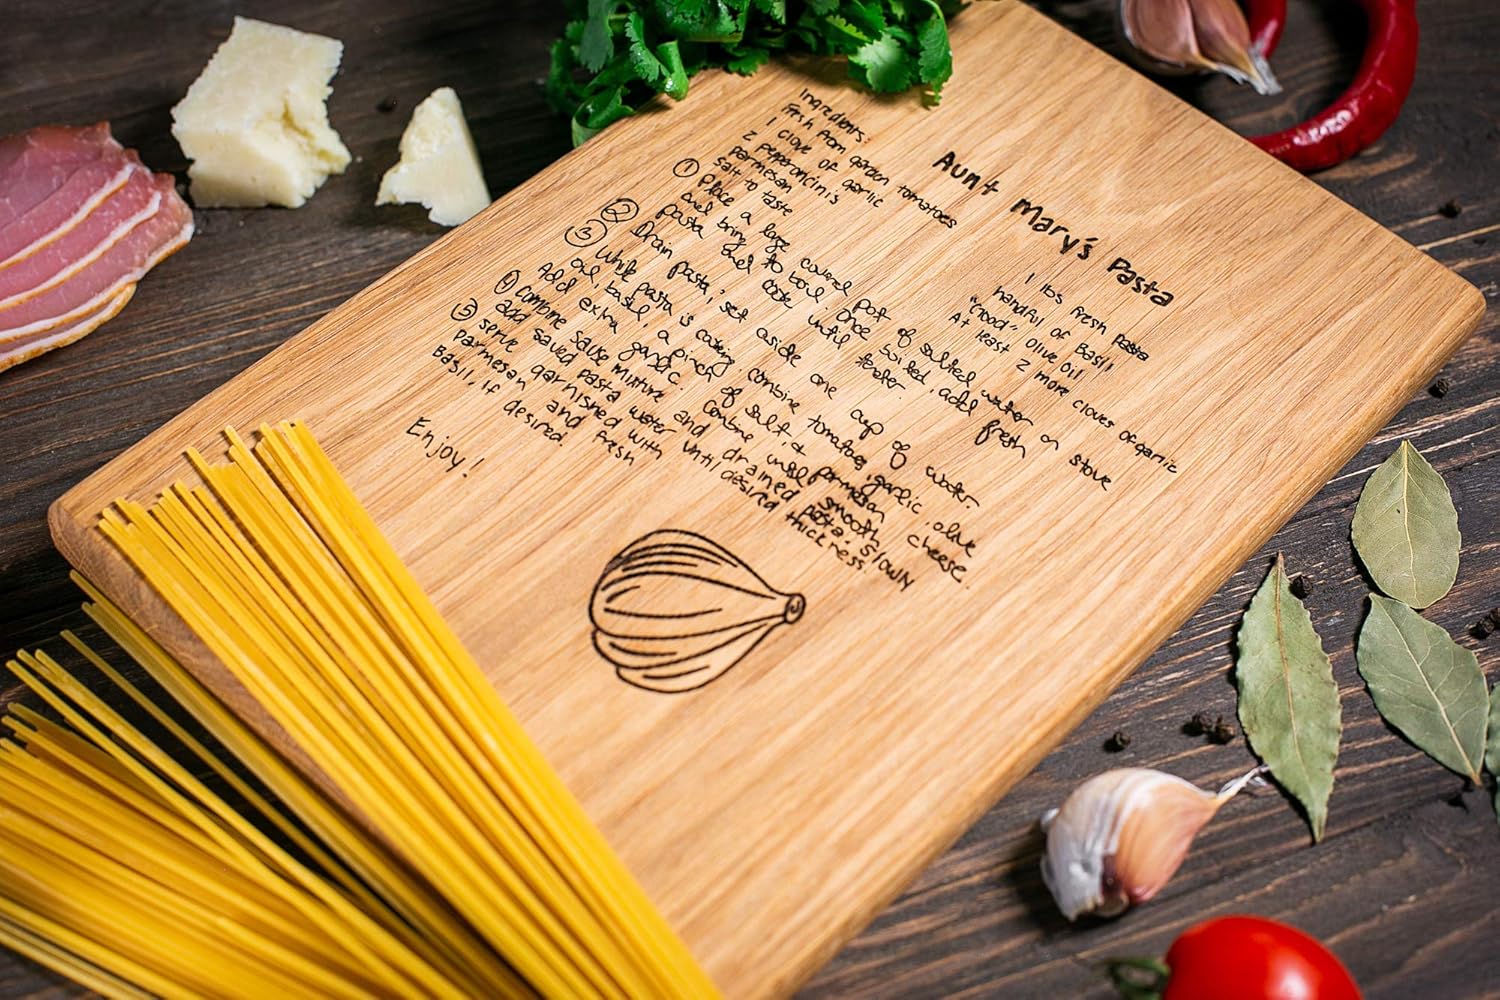 Aunt Mary's Pasta
Ingredients:
Fresh from garden tomatoes
1 clove of garlic
2 peperoncinis
parmesan
salt to taste
1 lbs fresh pasta
handful of Basil
"Good" Olive Oil
At least 2 more cloves of garlic
① Place a large covered pot of salted water on stove
and bring to boil. Once boiled, add fresh
pasta and cook until tender.
② Drain pasta, set aside one cup of water.
③ While pasta is cooking combine tomatoes, garlic, olive
oil, basil, a pinch of salt, & parmesan cheese.
Add extra garlic. Combine until smooth
④ combine sauce mixture and drained pasta, slowly
add saved pasta water until desired thickness.
⑤ serve garnished with
parmesan and fresh
Basil, if desired
Enjoy!